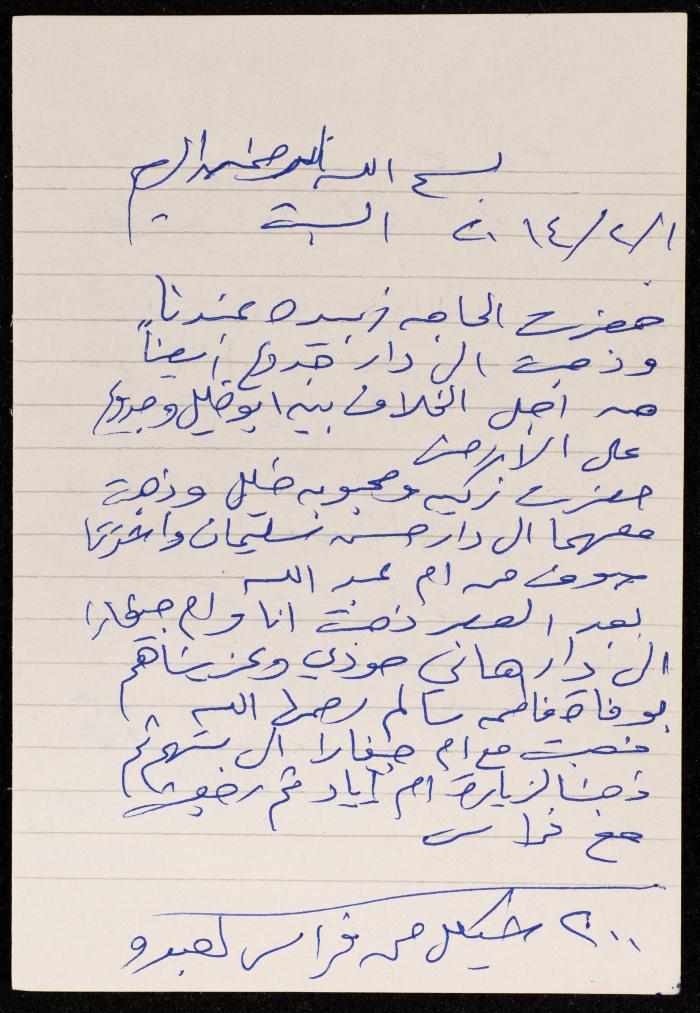 بسم الله الرحمن الرحيم
٢٠١٤/٢/١ السبت
حضرت الحاجه زبيده عندنا
وذهبت الى دار جدوع أيضاً
من اجل الخلاف بين ابو خليل وجدوع
على الأرض
حضرت زكيه ومحبوبه خليل وذهبت
معهما الى دار حسن سليمان واشترتا
من ام عبد الله
بعد العصر ذهبت انا وام جيفارا
الى دار هاني عوذي وعزيناهم
بوفاة فاطمه سالم رحمها الله
ذهبت مع ام جيفارا الى بيتهم ثم
ذهبنا لزيارة ام اياد ثم رجعت
مع فراس
٢٠٠ شيكل من فراس لعبدو